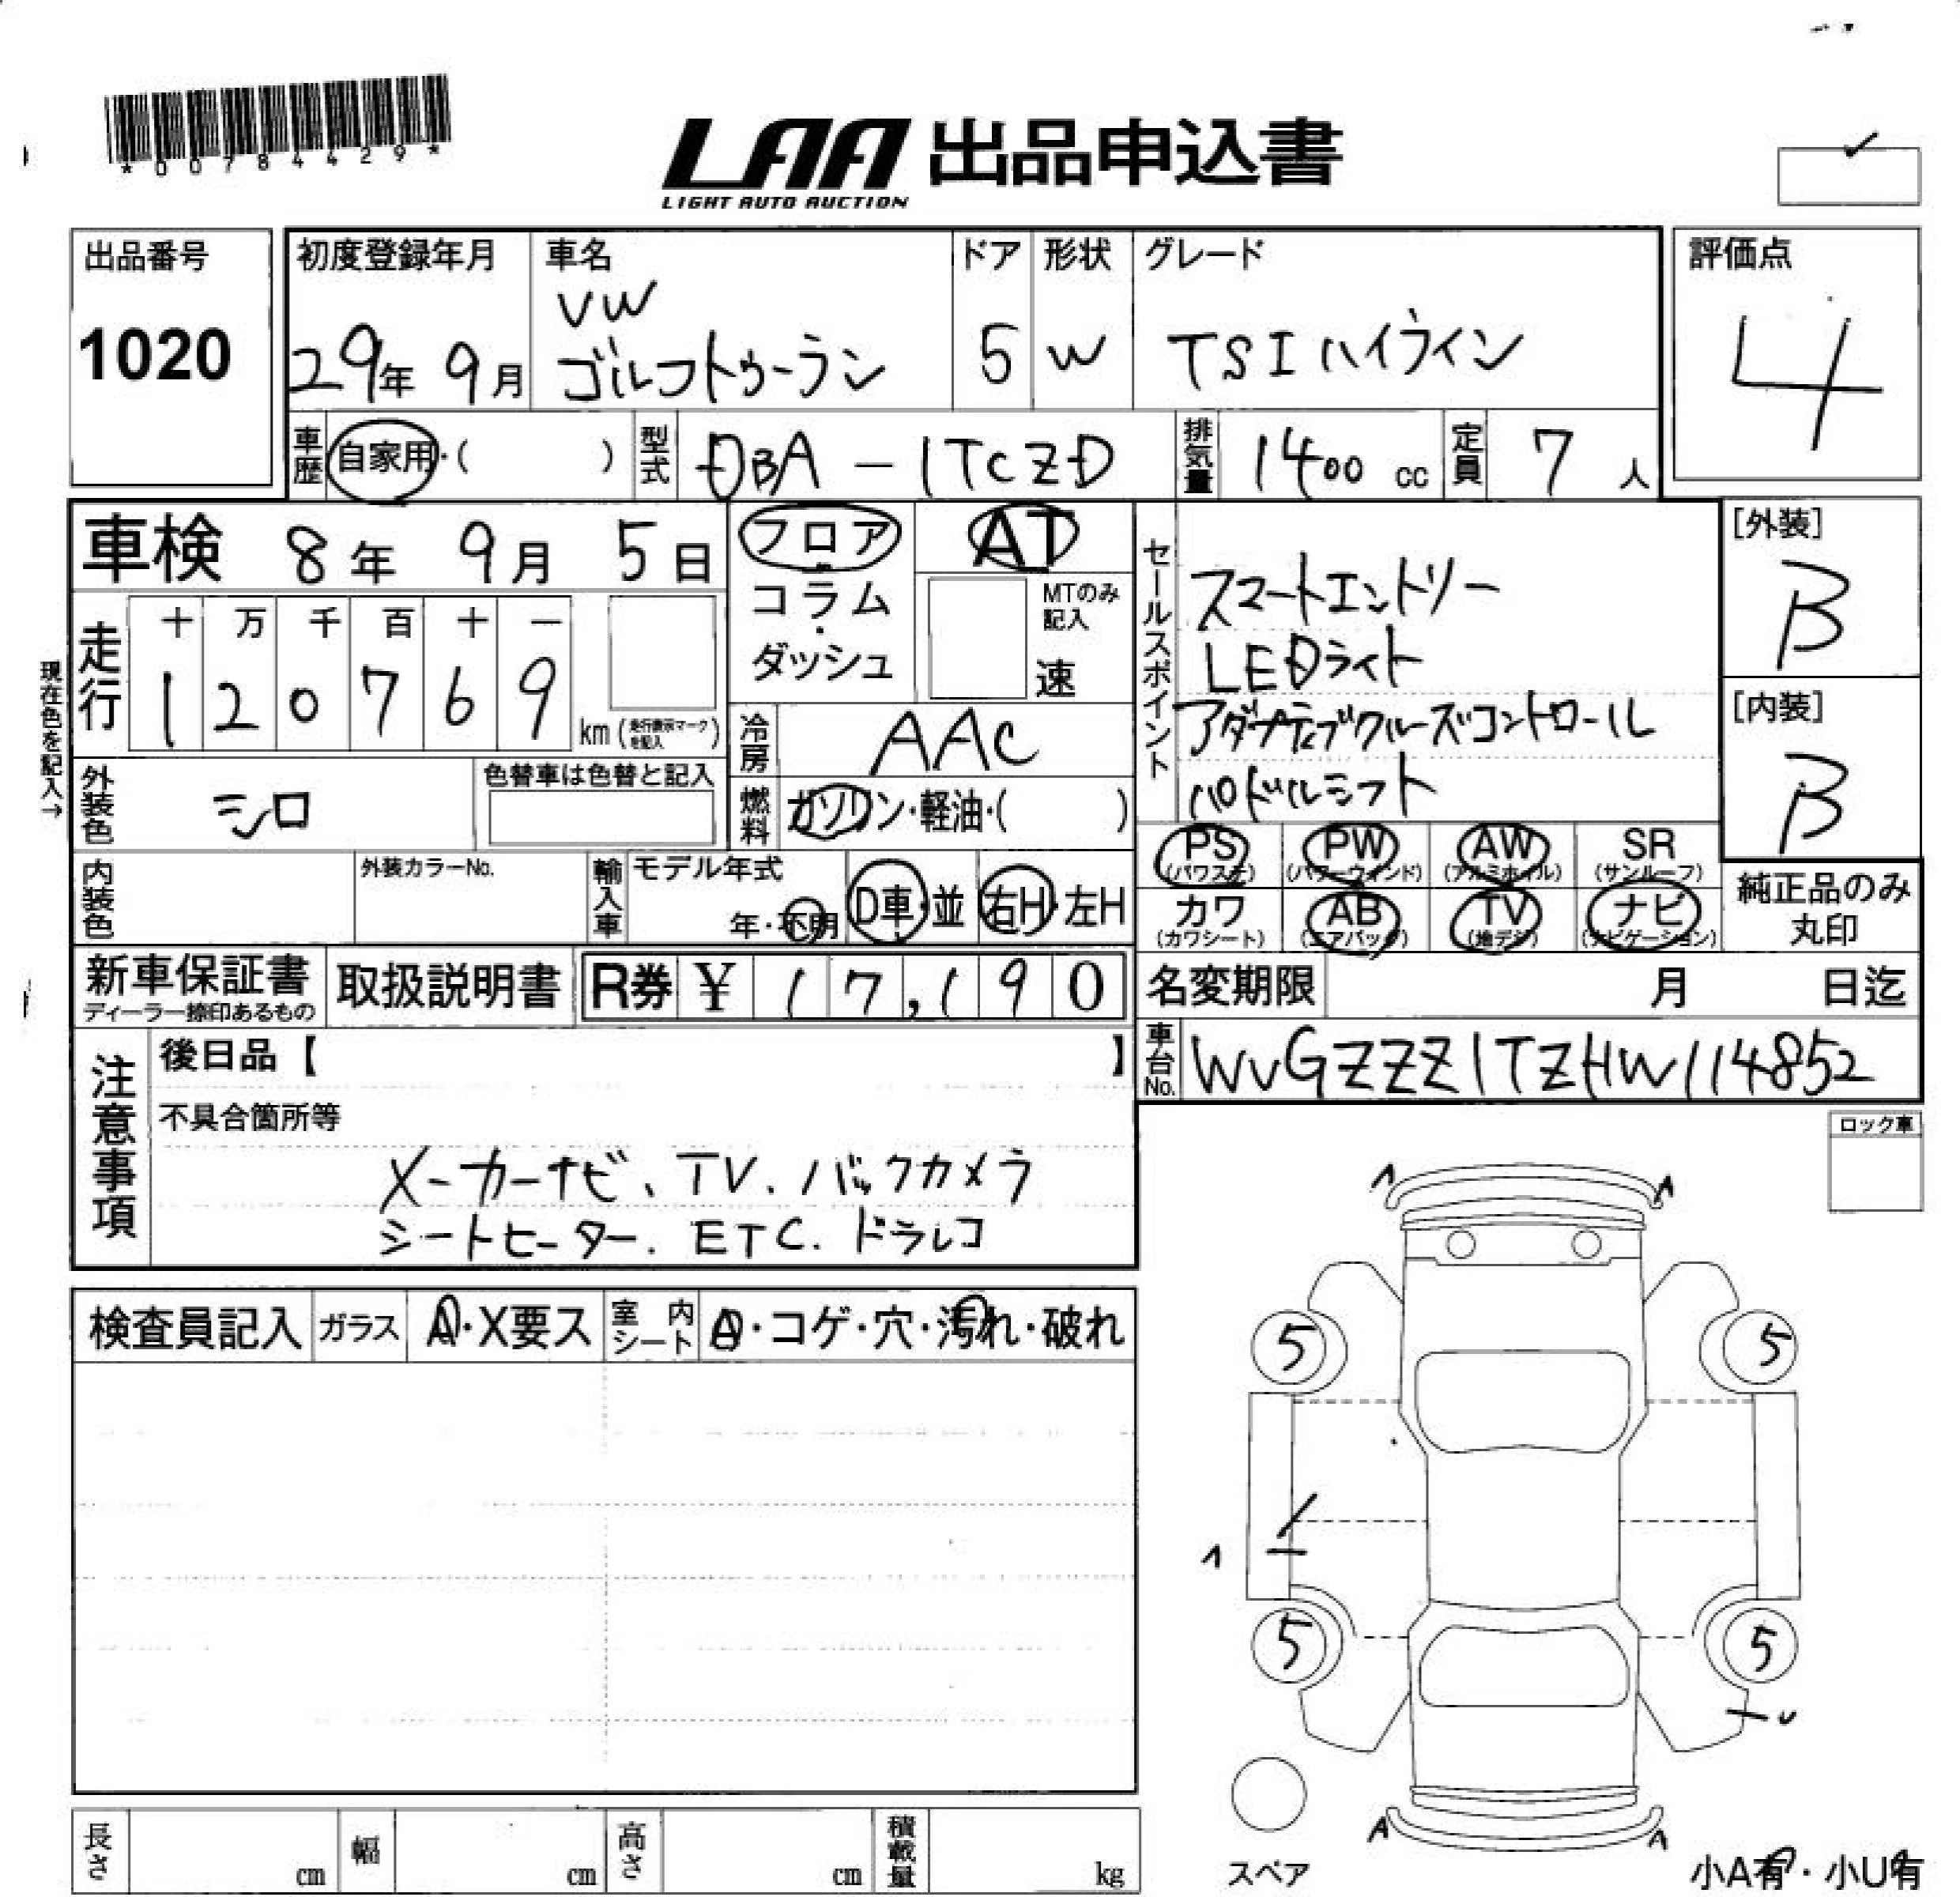 *00784429*
LAA 出品申込書
LIGHT AUTO AUCTION
出品番号
1020
初度登録年月
29年 9月
車名
VW
ゴルフトゥーラン
ドア
5
形状
W
グレード
TSIハイライン
評価点
4
車歴 自家用・( )
型式 DBA-1TCZD
排気量 1400 cc
定員 7 人
車検 8年 9月 5日
走行 十 万 千 百 十 一
1 2 0 7 6 9 km (走行表示マークを記入)
現在色を記入→
外装色 シロ
色替車は色替と記入
内装色
外装カラーNo.
フロア
コラム
・
ダッシュ
AT
MTのみ記入
速
冷房 AAC
燃料 ガソリン・軽油・( )
輸入車 モデル年式
年・不明
D車・並 右H・左H
セールスポイント
スマートエントリー
LEDライト
アダプティブクルーズコントロール
パドルシフト
[外装]
B
[内装]
B
PS (パワステ) PW (パワーウィンド) AW (アルミホイル) SR (サンルーフ)
カワ (カワシート) AB (エアバック) TV (地デジ) ナビ (ナビゲーション)
純正品のみ
丸印
新車保証書
ディーラー捺印あるもの
取扱説明書
R券 ¥ 17,190
名変期限 月 日迄
車台No. WVGZZZ1TZHW114852
注意事項
後日品【 】
不具合箇所等
メーカーナビ、TV、バックカメラ
シートヒーター、ETC、ドラレコ
ロック車
検査員記入 ガラス A・X要ス 室内シート A・コゲ・穴・汚れ・破れ
A A
5 5
5 5
A A
スペア
小A有・小U有
長さ cm 幅 cm 高さ cm 積載量 kg